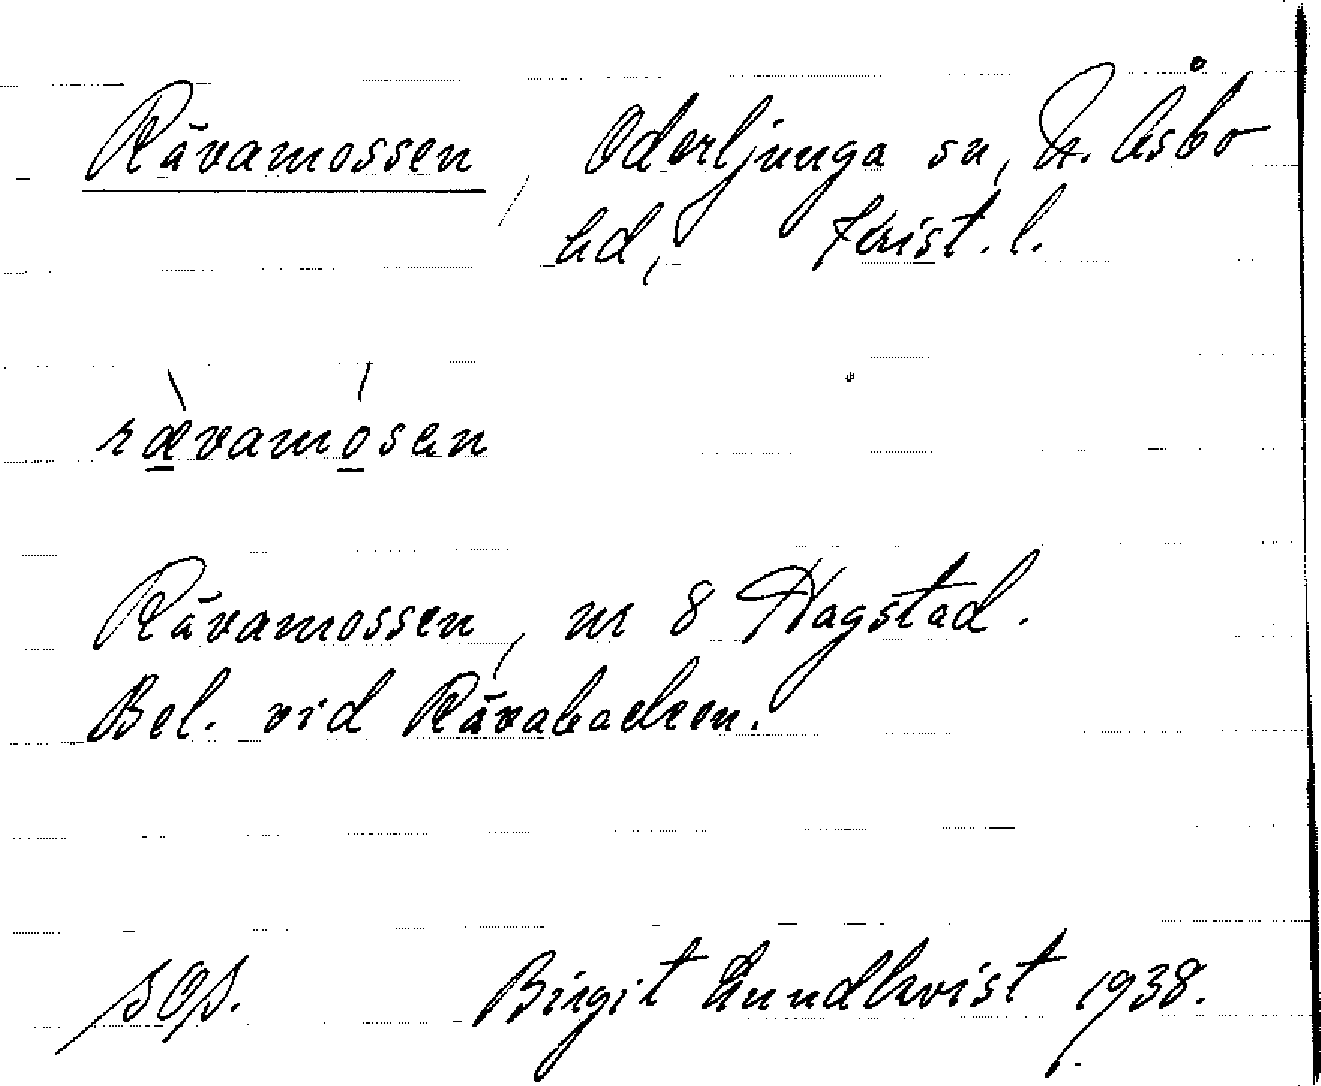 Rävamossen, Oderljunga sn, N. Åsbo
hd, Krist. l.
rævamosen
Rävamossen, nr 8 Hagstad.
Bel. vid Rävabacken.
sgs. Birgit Lundkvist 1938.